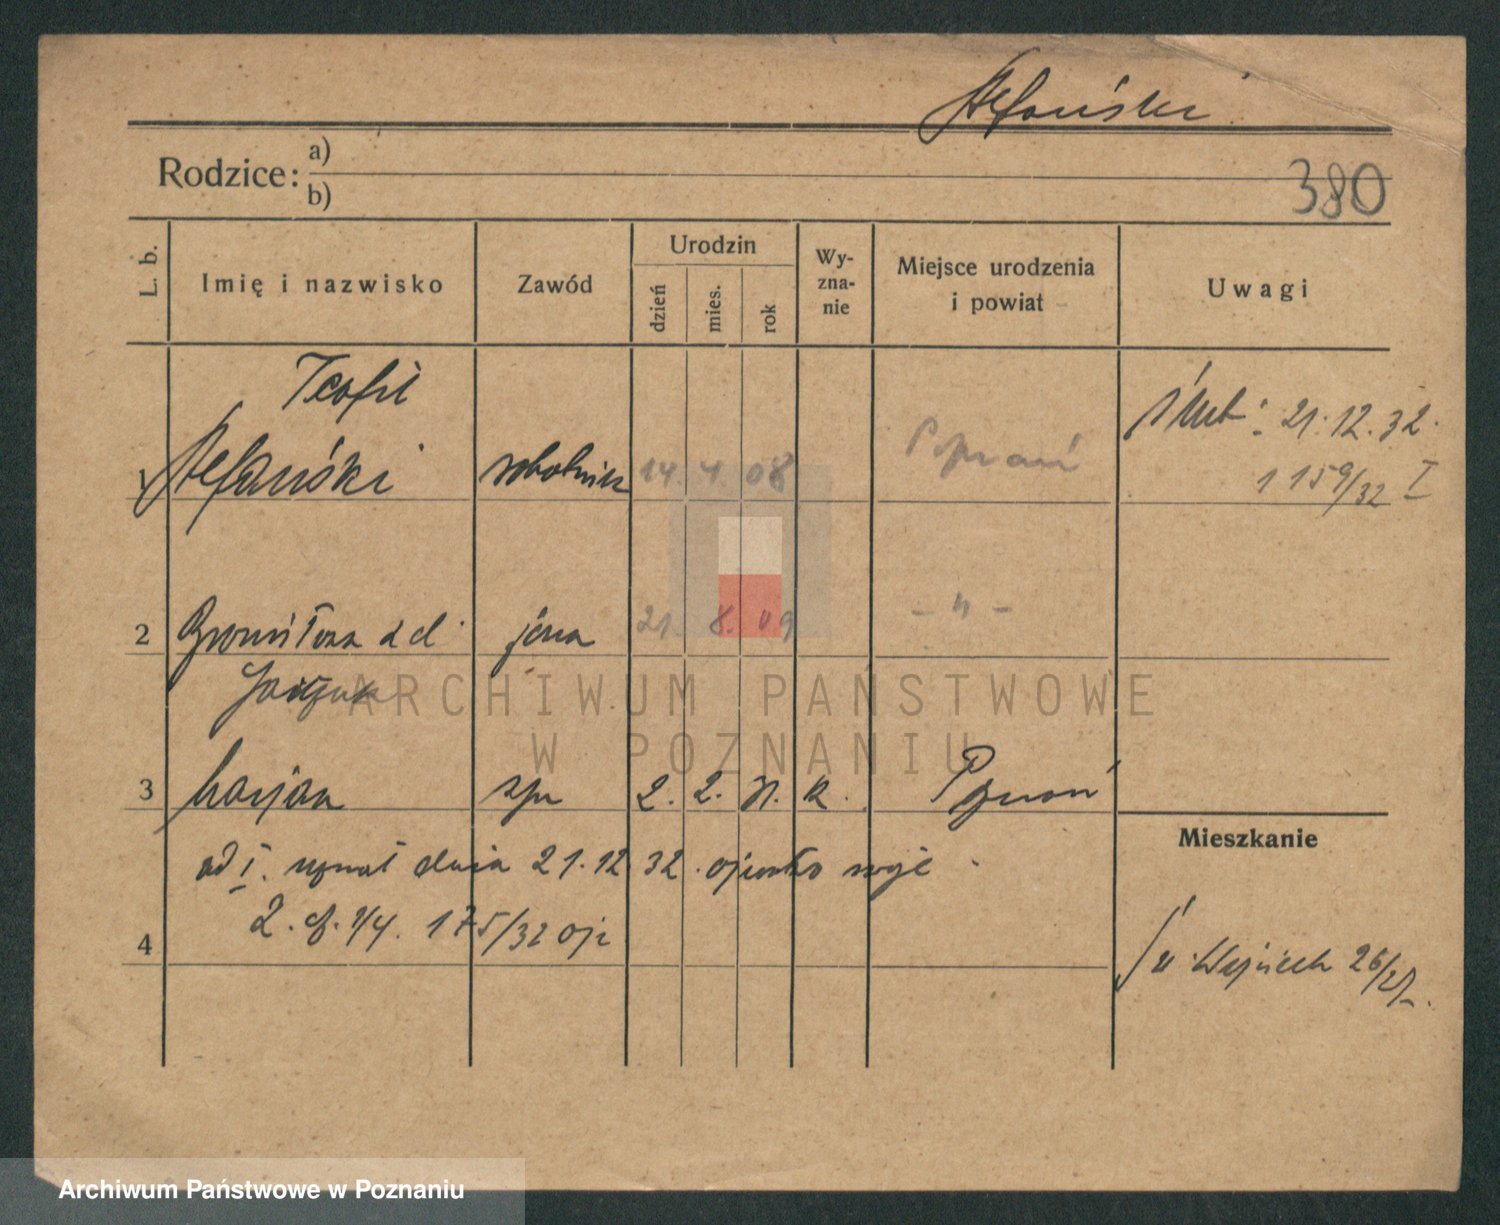 Stefański
Rodzice: a)
b)
380
L. b. Imię i nazwisko Zawód Urodzin dzień mies. rok Wy-zna-nie Miejsce urodzenia i powiat Uwagi
Teofil
1 Stefański robotnik 14. 4. 08 Poznań
ślub: 21.12.32.
1159/32 I
2 Bronisława z d. żona 21. 8. 09 - " -
3 Marjan syn 2. 2. 31. k. Poznań
ad I. uznał dnia 21.12 32. ojcostwo swoje
2. 175/32
4
Mieszkanie
Św. Wojciech 26/27
ARCHIWUM PAŃSTWOWE
W POZNANIU
Archiwum Państwowe w Poznaniu